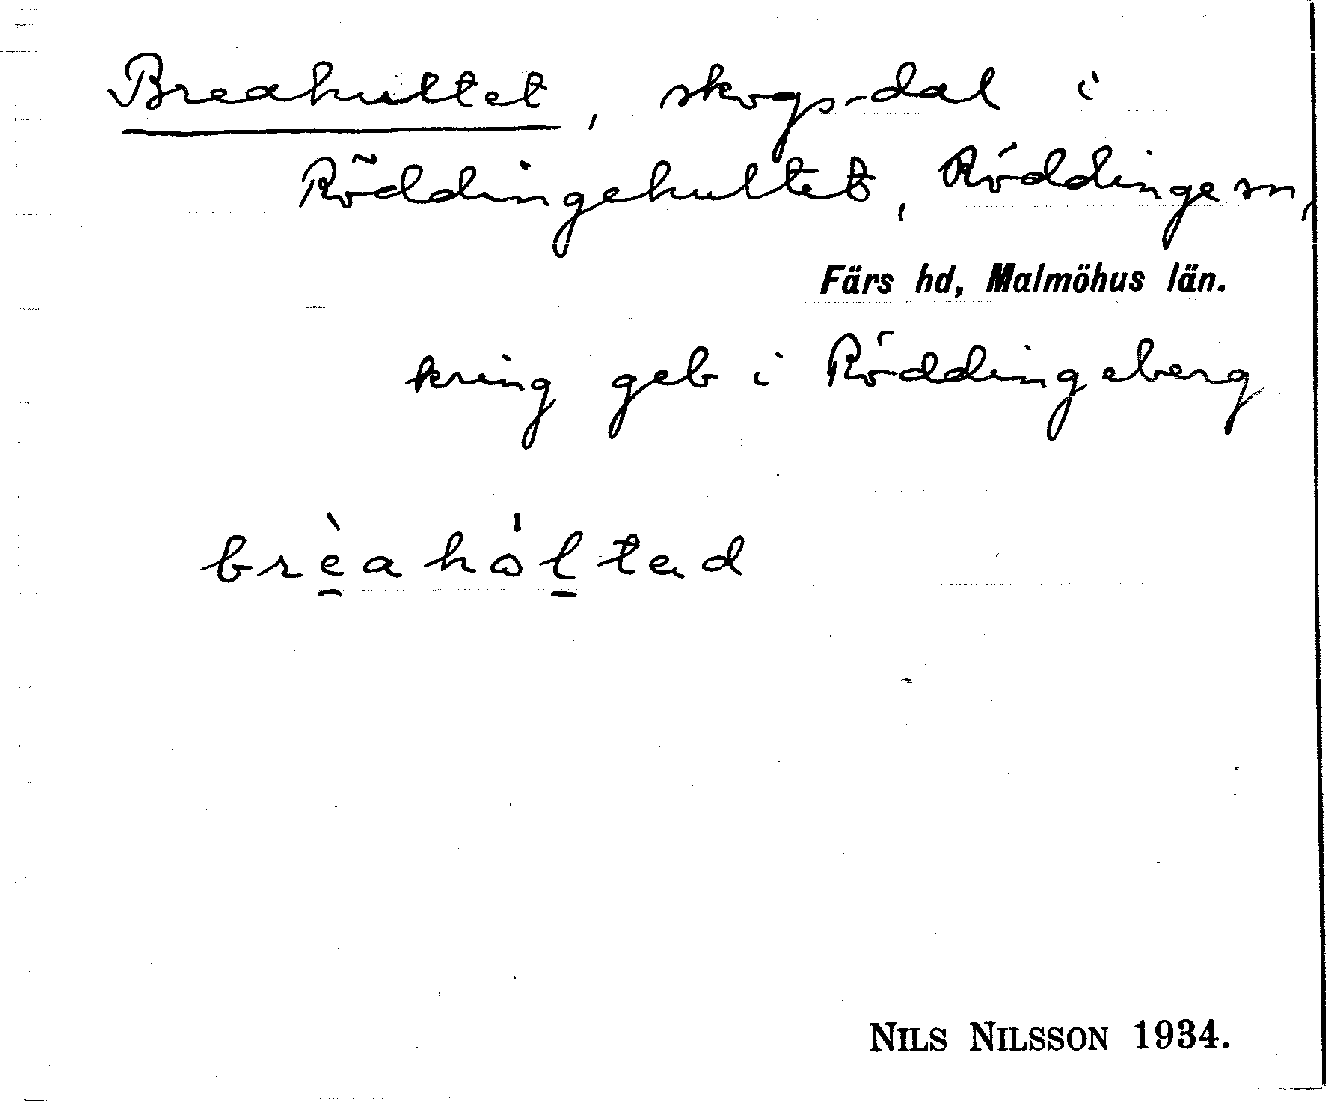 Breahultet, skogsdal i
Röddingehultet, Röddinge sn,
Färs hd, Malmöhus län.
kring geb i Röddingeberg
brèahóltad
NILS NILSSON 1934.